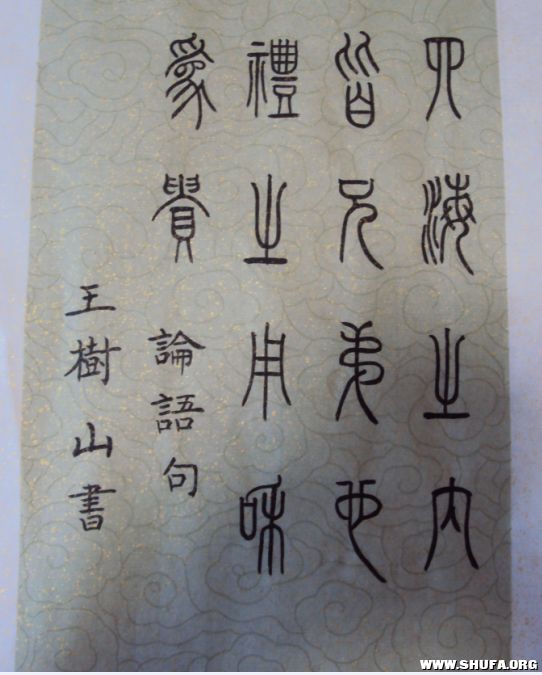 四海之内
皆兄弟也
禮之用和
為貴
論語句
王樹山書
WWW.SHUFA.ORG